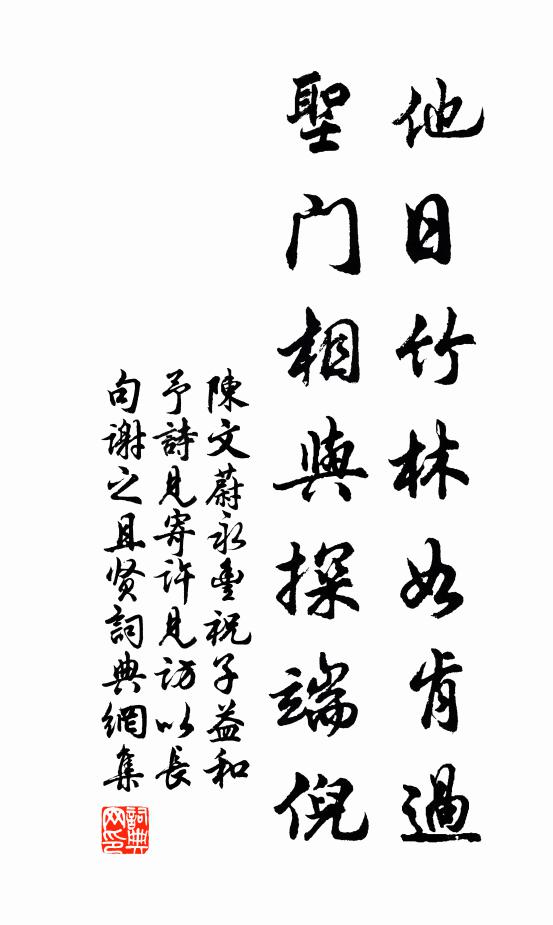 他日竹林如肯過
聖門相與探端倪
陳文蔚永豐祝子益和
予詩見寄許見訪以長
句謝之且贤詞典網集
詞典网印